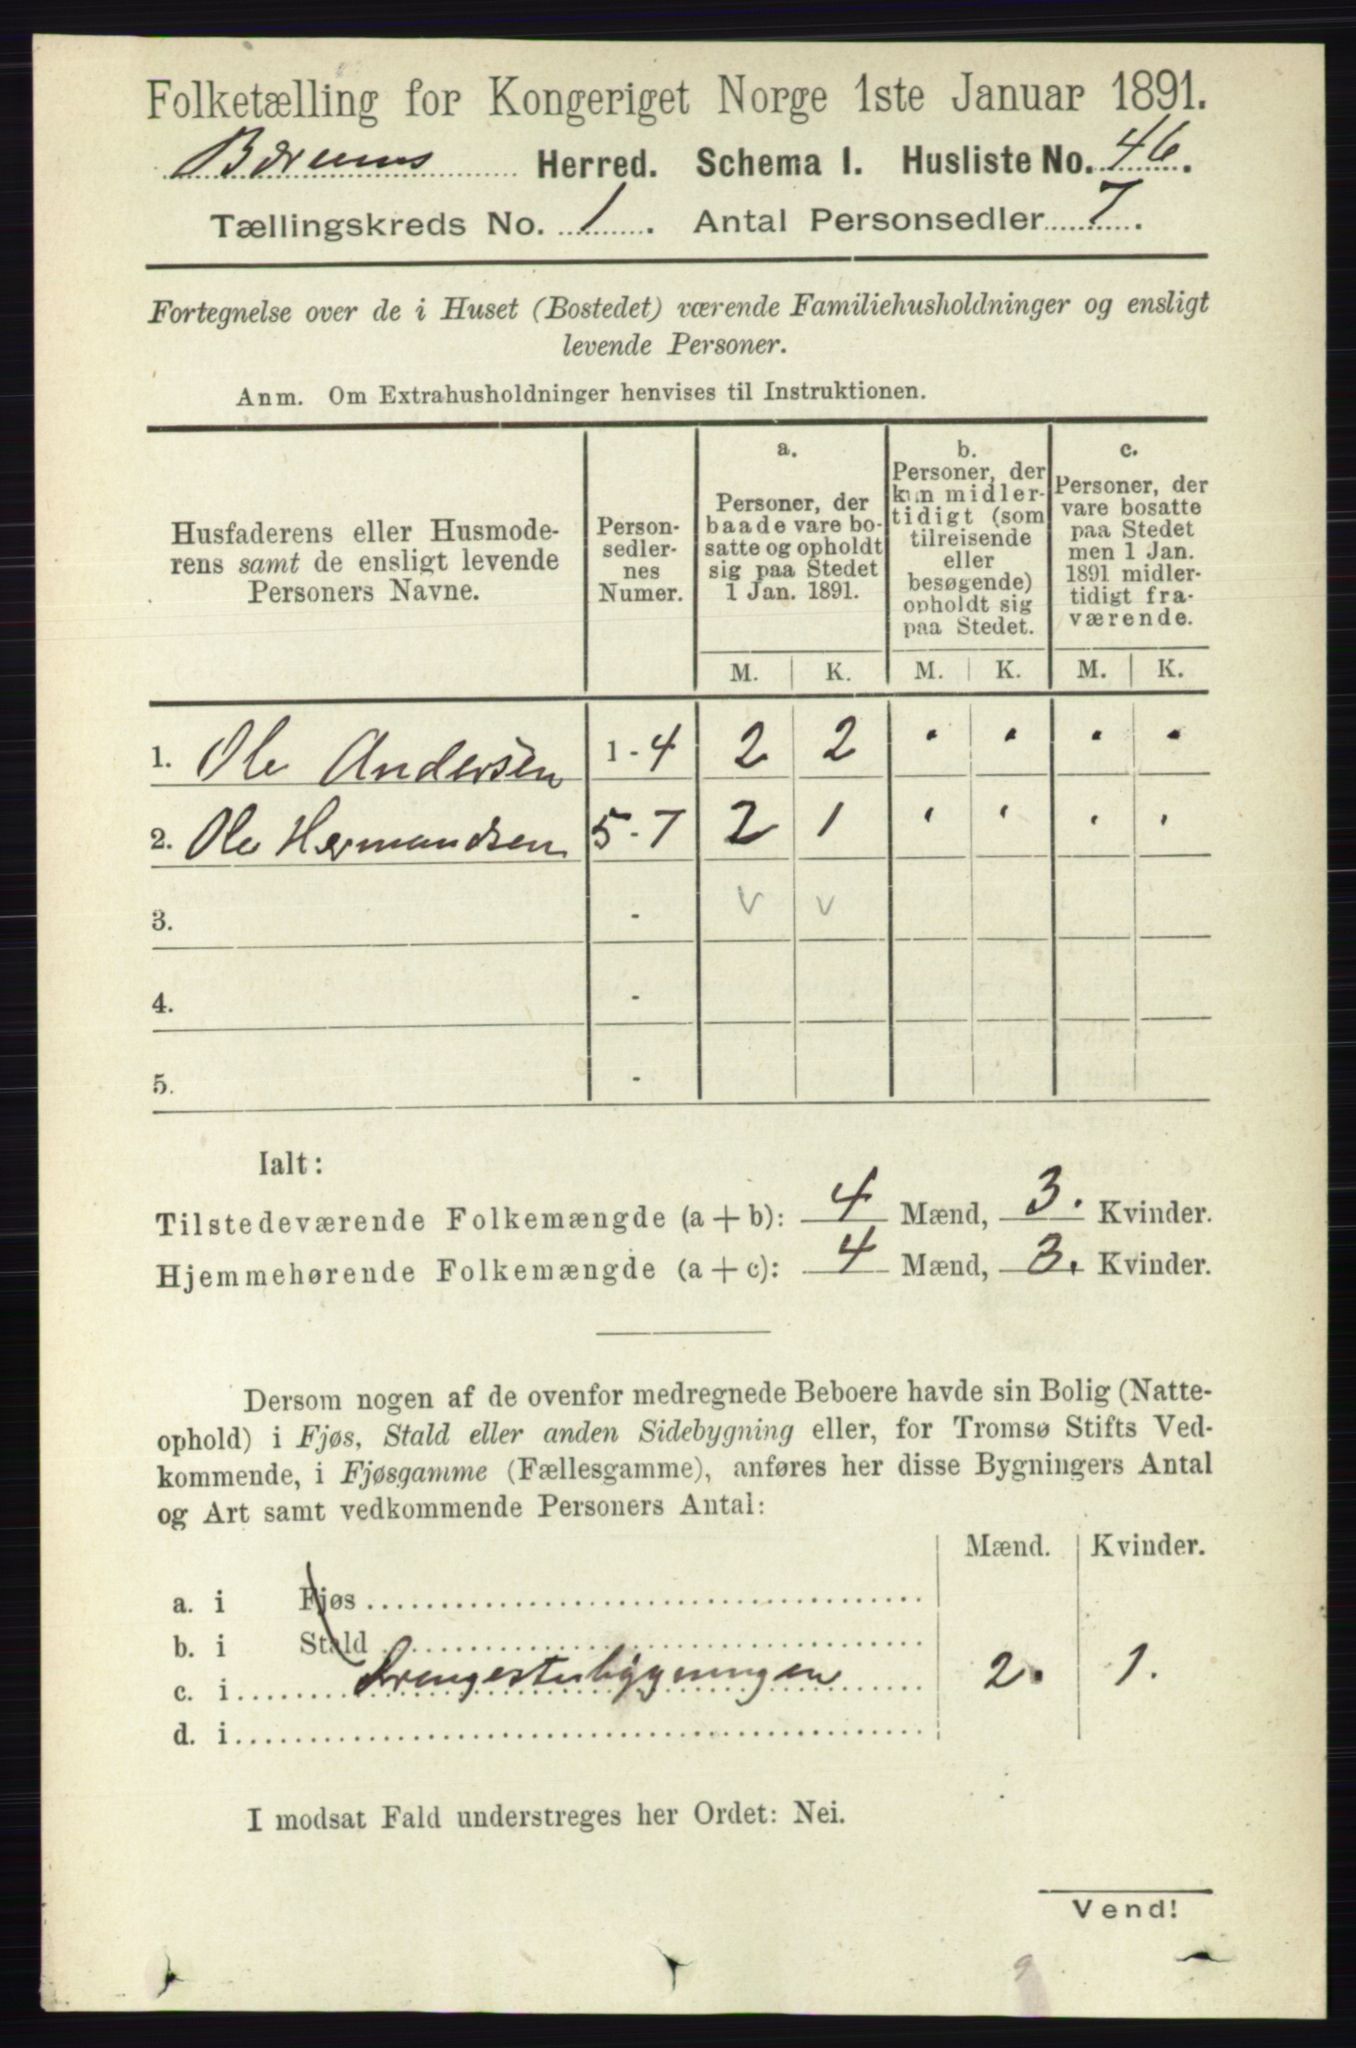 Folketælling for Kongeriget Norge 1ste Januar 1891.
Bærums Herred. Schema I. Husliste No. 46.
Tællingskreds No. 1. Antal Personsedler 7.
Fortegnelse over de i Huset (Bostedet) værende Familiehusholdninger og ensligt
levende Personer.
Anm. Om Extrahusholdninger henvises til Instruktionen.
Husfaderens eller Husmode-
rens samt de ensligt levende
Personers Navne.
Person-
sedler-
nes
Numer.
a.
Personer, der
baade vare bo-
satte og opholdt
sig paa Stedet
1 Jan. 1891.
b.
Personer, der
kun midler-
tidigt (som
tilreisende
eller
besøgende)
opholdt sig
paa Stedet.
c.
Personer, der
vare bosatte
paa Stedet
men 1 Jan.
1891 midler-
tidigt fra-
værende.
M. K. M. K. M. K.
1. Ole Andersen 1-4 2 2 · · · ·
2. Ole Hermandsen 5-7 2 1 · · · ·
3. - v v
4. -
5. -
Ialt:
Tilstedeværende Folkemængde (a+b): 4 Mænd, 3. Kvinder.
Hjemmehørende Folkemængde (a+c): 4 Mænd, 3. Kvinder.
Dersom nogen af de ovenfor medregnede Beboere havde sin Bolig (Natte-
ophold) i Fjøs, Stald eller anden Sidebygning eller, for Tromsø Stifts Ved-
kommende, i Fjøsgamme (Fællesgamme), anføres her disse Bygningers Antal
og Art samt vedkommende Personers Antal:
Mænd. Kvinder.
a. i Fjøs
b. i Stald
c. i Drengestubygningen 2. 1.
d. i
I modsat Fald understreges her Ordet: Nei.
Vend!